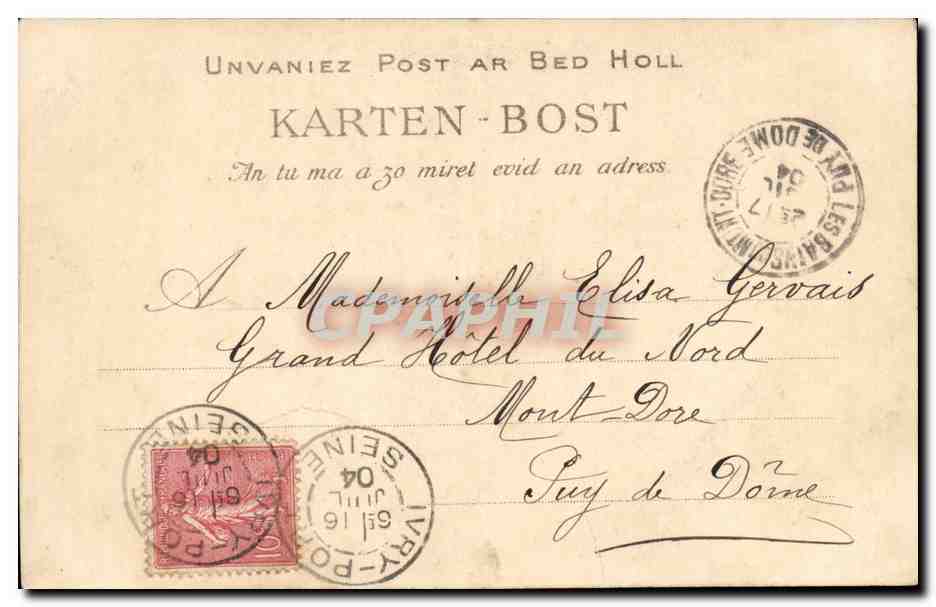 UNVANIEZ POST AR BED HOLL
KARTEN-BOST
An tu ma a zo miret evid an adress.
MONT-DORE LES BAINS PUY DE DOME
17
JIL
04
A Mademoiselle Elisa Gervais
CPAPHIL
Grand Hôtel du Nord
Mont Dore
Puy de Dôme
IVRY-PORT SEINE
6E 16
JUIL
04
IVRY-POR SEINE
6E 16
JUIL
04
10